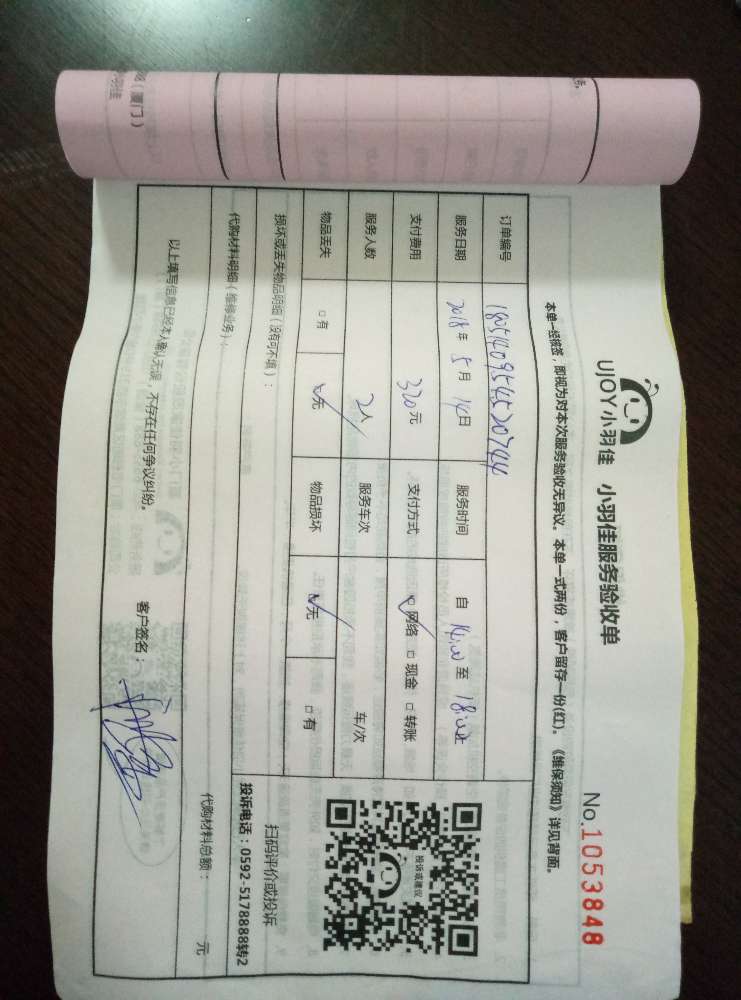 UJOY小羽佳 小羽佳服务验收单
No.1053848
本单一经核签，即视为对本次服务验收无异议。本单一式两份，客户留存一份(红)。《维保须知》详见背面。
订单编号
服务日期 2018年 5月 14日 服务时间 自 14:00 至 18:00止
支付费用 320元 支付方式 网络 □ 现金 □ 转账
服务人数 2人 服务车次 车/次
物品丢失 □ 有 无 物品损坏 无 □ 有
投诉或建议
扫码评价或投诉
投诉电话：0592-5178888转2
损坏或丢失物品明细（没有可不填）：
代购材料明细（维修业务）： 代购材料总额： 元
以上填写信息已经本人确认无误，不存在任何争议纠纷。 客户签名：